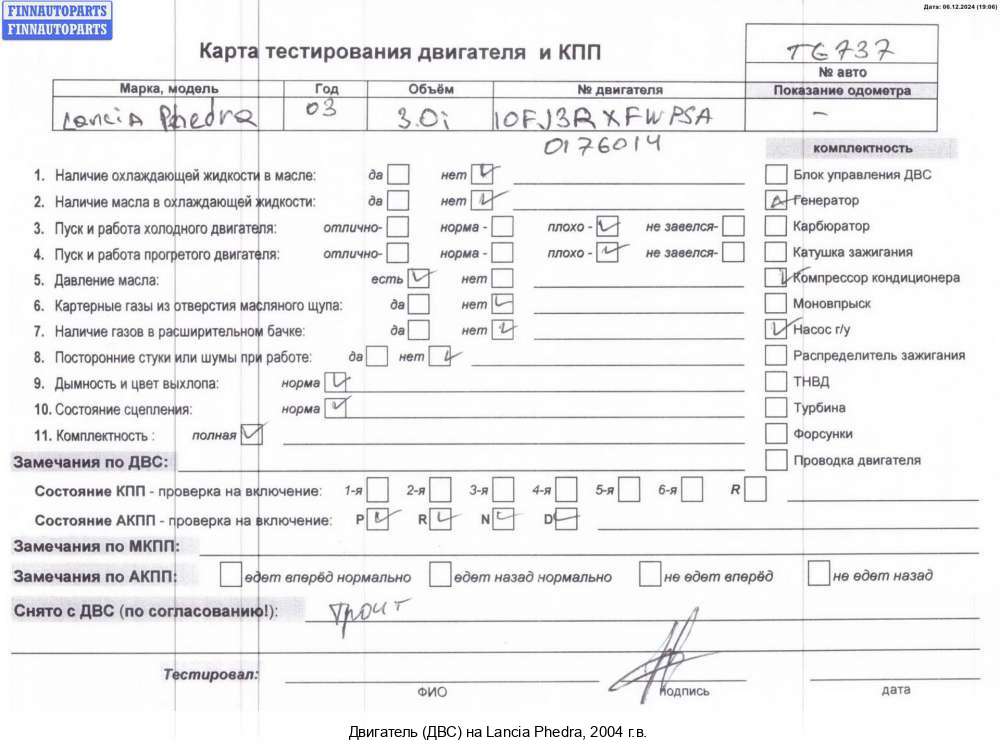 FINNAUTOPARTS
FINNAUTOPARTS
Дата: 06.12.2024 (19:06)
Карта тестирования двигателя и КПП
TG737
№ авто
Марка, модель Год Объём № двигателя Показание одометра
Lancia Phedra 03 3.0i 10FJ3RXFWPSA –
0176014
комплектность
1. Наличие охлаждающей жидкости в масле: да нет
Блок управления ДВС
2. Наличие масла в охлаждающей жидкости: да нет
Генератор
3. Пуск и работа холодного двигателя: отлично- норма - плохо - не завелся-
Карбюратор
4. Пуск и работа прогретого двигателя: отлично- норма - плохо - не завелся-
Катушка зажигания
5. Давление масла: есть нет
Компрессор кондиционера
6. Картерные газы из отверстия масляного щупа: да нет
Моновпрыск
7. Наличие газов в расширительном бачке: да нет
Насос г/у
8. Посторонние стуки или шумы при работе: да нет
Распределитель зажигания
9. Дымность и цвет выхлопа: норма
ТНВД
10. Состояние сцепления: норма
Турбина
11. Комплектность : полная
Форсунки
Замечания по ДВС:
Проводка двигателя
Состояние КПП - проверка на включение: 1-я 2-я 3-я 4-я 5-я 6-я R
Состояние АКПП - проверка на включение: P R N D
Замечания по МКПП:
Замечания по АКПП: едет вперёд нормально едет назад нормально не едет вперёд не едет назад
Снято с ДВС (по согласованию!): троит
Тестировал:
ФИО подпись дата
Двигатель (ДВС) на Lancia Phedra, 2004 г.в.